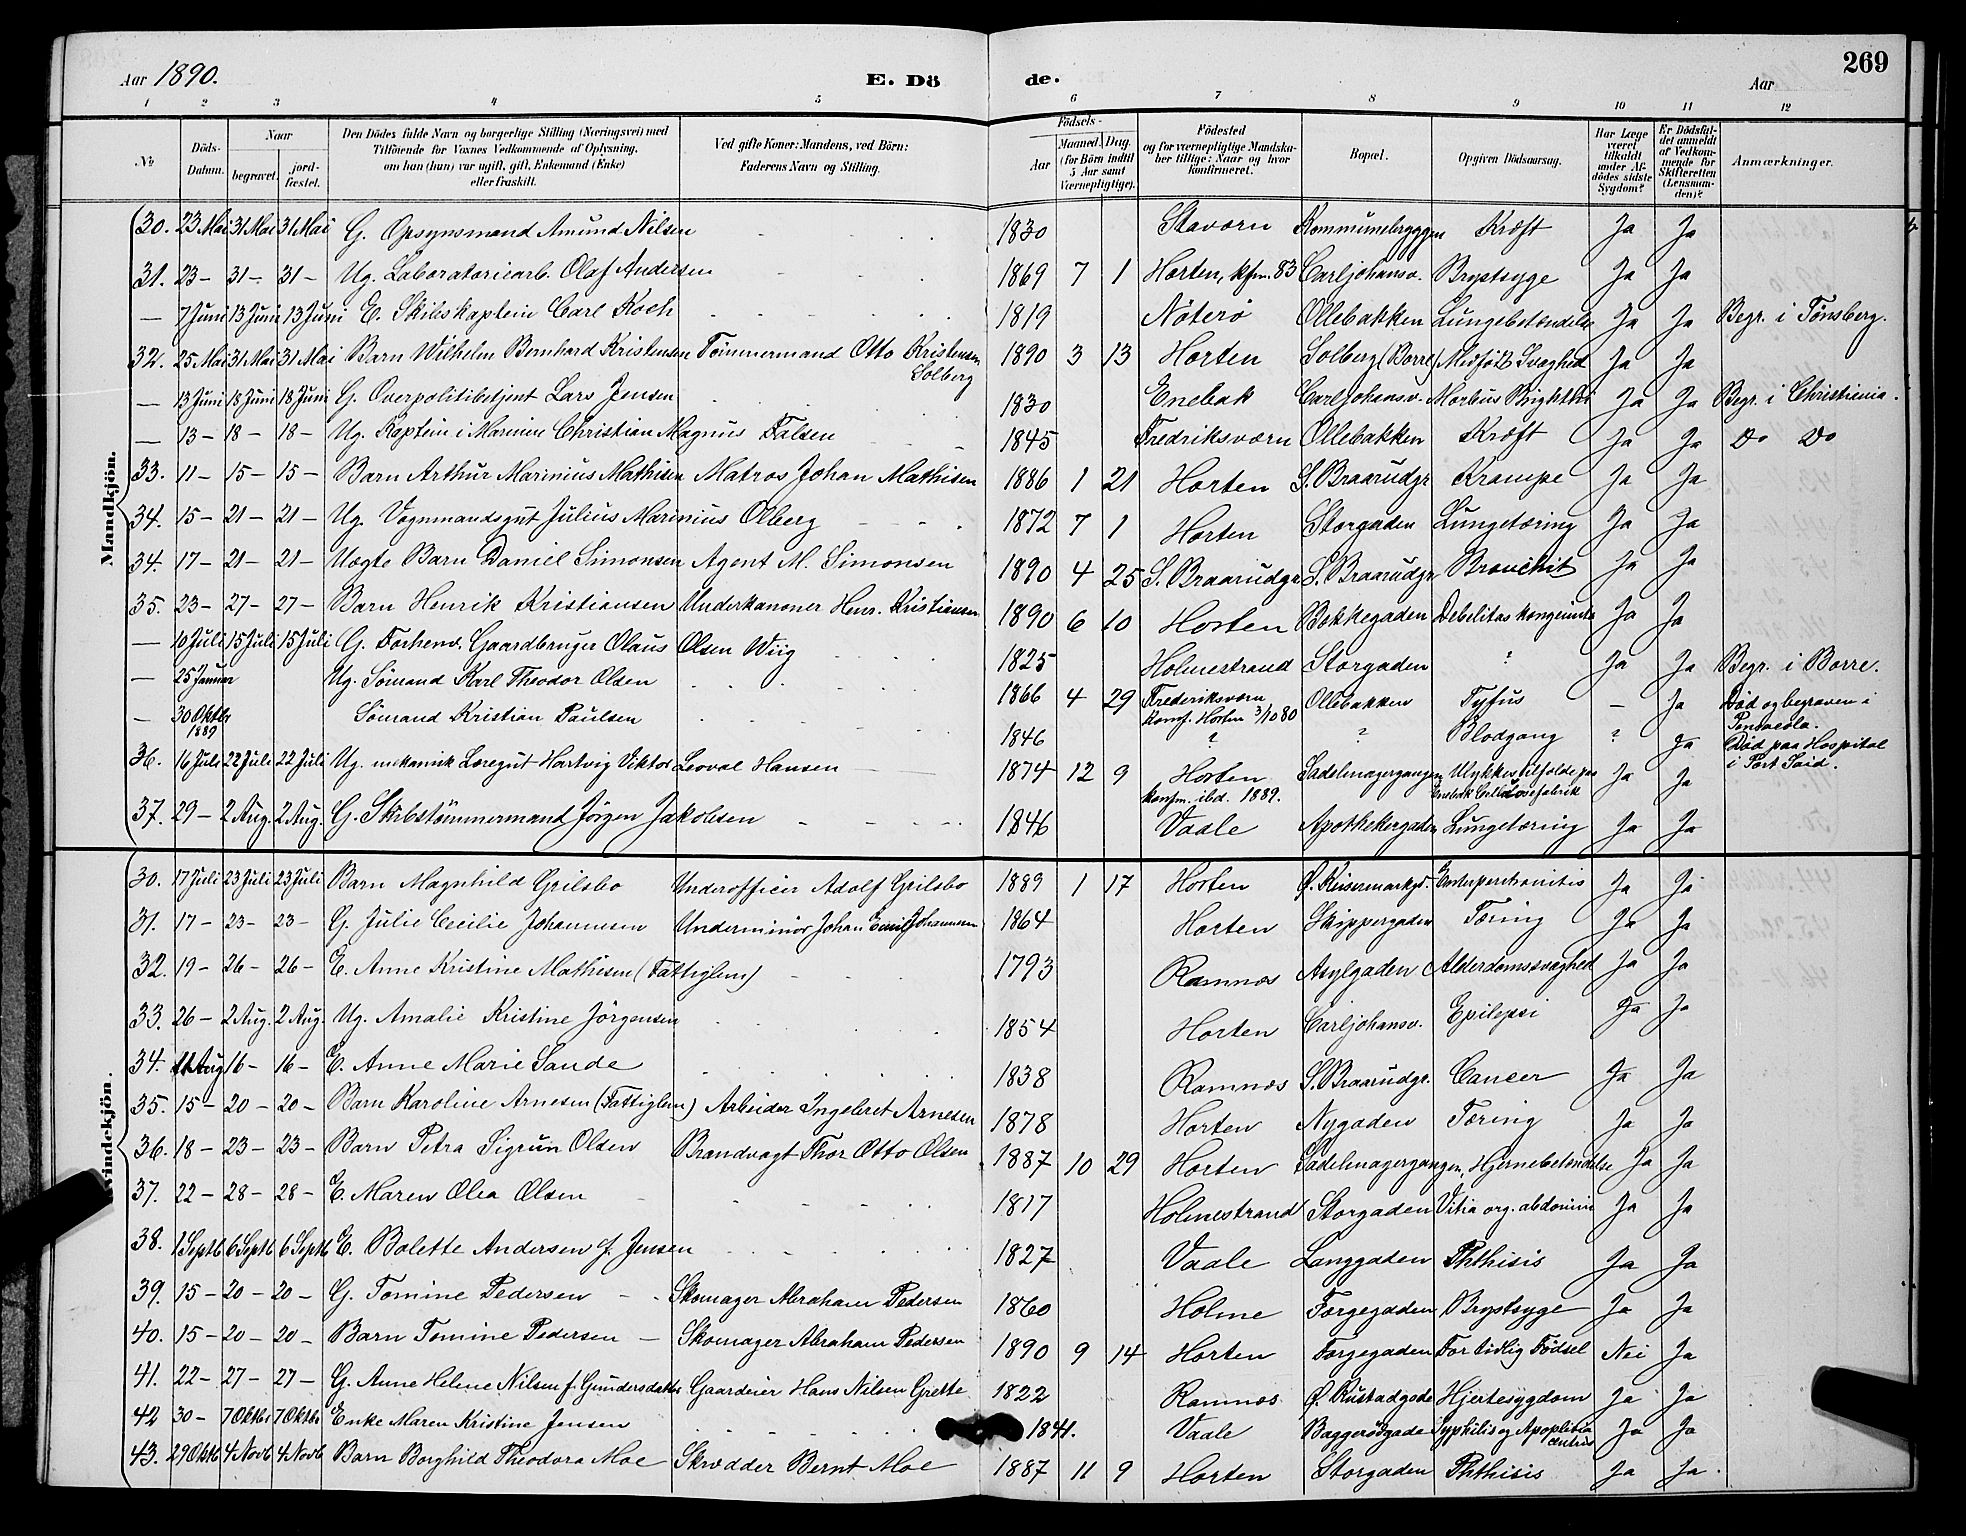 Aar 1890.
E. Dö
de.
Aar
269
1 2 3 4 5 6 7 8 9 10 11 12
№
Döds-Datum.
Naar
begravet.
jord-fæstet.
Den Dödes fulde Navn og borgerlige Stilling (Næringsvei) med Tilföiende for Voxnes Vedkommende af Oplysning, om han (hun) var ugift, gift, Enkemand (Enke) eller fraskilt.
Ved gifte Koner: Mandens, ved Börn: Faderens Navn og Stilling.
Födsels-
Aar
Maaned. Dag. (for Börn indtil 5 Aar samt Værnepligtige).
Födested og for værnepligtige Mandskaber tillige: Naar og hvor konfirmeret.
Bopæl.
Opgiven Dödsaarsag.
Har Læge været tilkaldt under Afdödes sidste Sygdom?
Er Dödsfaldet anmeldt af Vedkommende for Skifteretten (Lensmanden)?
Anmærkninger.
Mandkjön.
30. 23 Mai 31 Mai 31 Mai G. Opsynsmand Amund Nilsen 1830 Stavern Kommunebryggen Kræft Ja Ja
31. 23 – 31 – 31 – Ug. Laboratoriearb. Olaf Andersen 1869 7 1 Horten, kfm. 83 Carljohansv. Brystsyge Ja Ja
– 7 Juni 13 Juni 13 Juni E. Skibskaptein Carl Koch 1819 Nöterö Ollebakken Lungebetændelse Ja Ja Begr. i Tönsberg.
32. 25 Mai 31 Mai 31 Mai Barn Wilhelm Bernhard Kristensen Tömmermand Otto Kristensen Solberg 1890 3 13 Horten Solberg (Borre) Medfödt Svaghed Ja Ja
– 13 Juni 18 Juni 18 Juni G. Overpolitibetjent Lars Jensen 1830 Enebak Carljohansv. Morbus Brightii Ja Ja Begr. i Christiania.
– 13 – 18 – 18 – Ug. Kaptein i Marinen Christian Magnus Falsen 1845 Fredriksværn Ollebakken Kræft Ja Ja Do Do
33. 11 – 15 – 15 – Barn Arthur Marinius Mathisen Matros Johan Mathisen 1886 1 21 Horten S. Braarudgr Krampe Ja Ja
34. 15 – 21 – 21 – Ug. Vognmandsgut Julius Marinius Olberg 1872 7 1 Horten Storgaden Lungetæring Ja Ja
34. 17 – 21 – 21 – Uægte Barn Daniel Simonsen Agent M. Simonsen 1890 4 25 S. Braarudgr S. Braarudgr Bronchit Ja Ja
35. 23 – 27 – 27 – Barn Henrik Kristiansen Underkanoner Hens. Kristiansen 1890 6 10 Horten Bakkegaden Debilitas kongenita Ja Ja
– 10 Juli 15 Juli 15 Juli G. Forhenv. Gaardbruger Olaus Olsen Wiig 1825 Holmestrand Storgaden ? Ja Ja Begr. i Borre.
– 25 Januar Ug. Sömand Karl Theodor Olsen 1866 4 29 Frederiksværn konf. Horten 3/10 80 Ollebakken Tyfus – Ja Död og begraven i Pensacola.
– 30 Oktbr 1889 Sömand Kristian Paulsen 1846 ? ? Blodgang ? Ja Död paa Hospital i Port Said.
36. 16 Juli 22 Juli 22 Juli Ug. mekanik Læregut Hartvig Viktor Leoval Hansen 1874 12 9 Horten konfm. ibd. 1889. Sadelmagergangen Ulykkestilfælde paa Enebak Cellulosefabrik Ja Ja
37. 29 – 2 Aug. 2 Aug. G. Skibstömmermand Jörgen Jakobsen 1846 Vaale Apothekergaden Lungetæring Ja Ja
Kvindekjön.
30. 17 Juli 23 Juli 23 Juli Barn Magnhild Grilsbo Underofficer Adolf Grilsbo 1889 1 17 Horten Ø. Keisermarkgd. Enterperitonitis Ja Ja
31. 17 – 23 – 23 – G. Julie Cecilie Johannesen Underminör Johan Emil Johannesen 1864 Horten Skippergaden Tæring Ja Ja
32. 19 – 26 – 26 – E. Anne Kristine Mathisen (Fattiglem) 1793 Ramnæs Asylgaden Alderdomssvaghed Ja Ja
33. 26 – 2 Aug. 2 Aug. Ug. Amalie Kristine Jörgensen 1854 Horten Carljohansv. Epilepsi Ja Ja
34. 11 Aug 16 – 16 – E. Anne Marie Sande 1838 Ramnæs S. Braarudgr. Cancer Ja Ja
35. 15 – 20 – 20 – Barn Karoline Arnesen (Fattiglem) Arbeider Ingebret Arnesen 1878 Horten Nygaden Tæring Ja Ja
36. 18 – 23 – 23 – Barn Petra Sigrun Olsen Brandvagt Thor Otto Olsen 1887 10 29 Horten Sadelmagergangen Hjernebetændelse Ja Ja
37. 22 – 28 – 28 – E. Maren Olea Olsen 1817 Holmestrand Storgaden Vitia org. abdomin Ja Ja
38. 1 Septb 6 Septb 6 Septb E. Bolette Andersen f. Jensen 1827 Vaale Langgaden Phthisis Ja Ja
39. 15 – 20 – 20 – G. Tomine Pedersen Skomager Abraham Pedersen 1860 Holme Torgegaden Brystsyge Ja Ja
40. 15 – 20 – 20 – Barn Tomine Pedersen Skomager Abraham Pedersen 1890 9 14 Horten Torgegaden For tidlig Födsel Nei Ja
41. 22 – 27 – 27 – G. Anne Helene Nilsen f. Gundersdatter Gaardeier Hans Nilsen Grette 1822 Ramnæs Ø. Rustadgade Hjertesygdom Ja Ja
42 30 – 7 Oktbr 7 Oktbr Enke Maren Kristine Jensen 1841. Vaale Baggerödgade Syphilis og Apoplexia Ja Ja
43. 29 Oktb 4 Novb 4 Novb Barn Borghild Theodora Moe Skrædder Bernt Moe 1887 11 9 Horten Storgaden Phthisis Ja Ja.